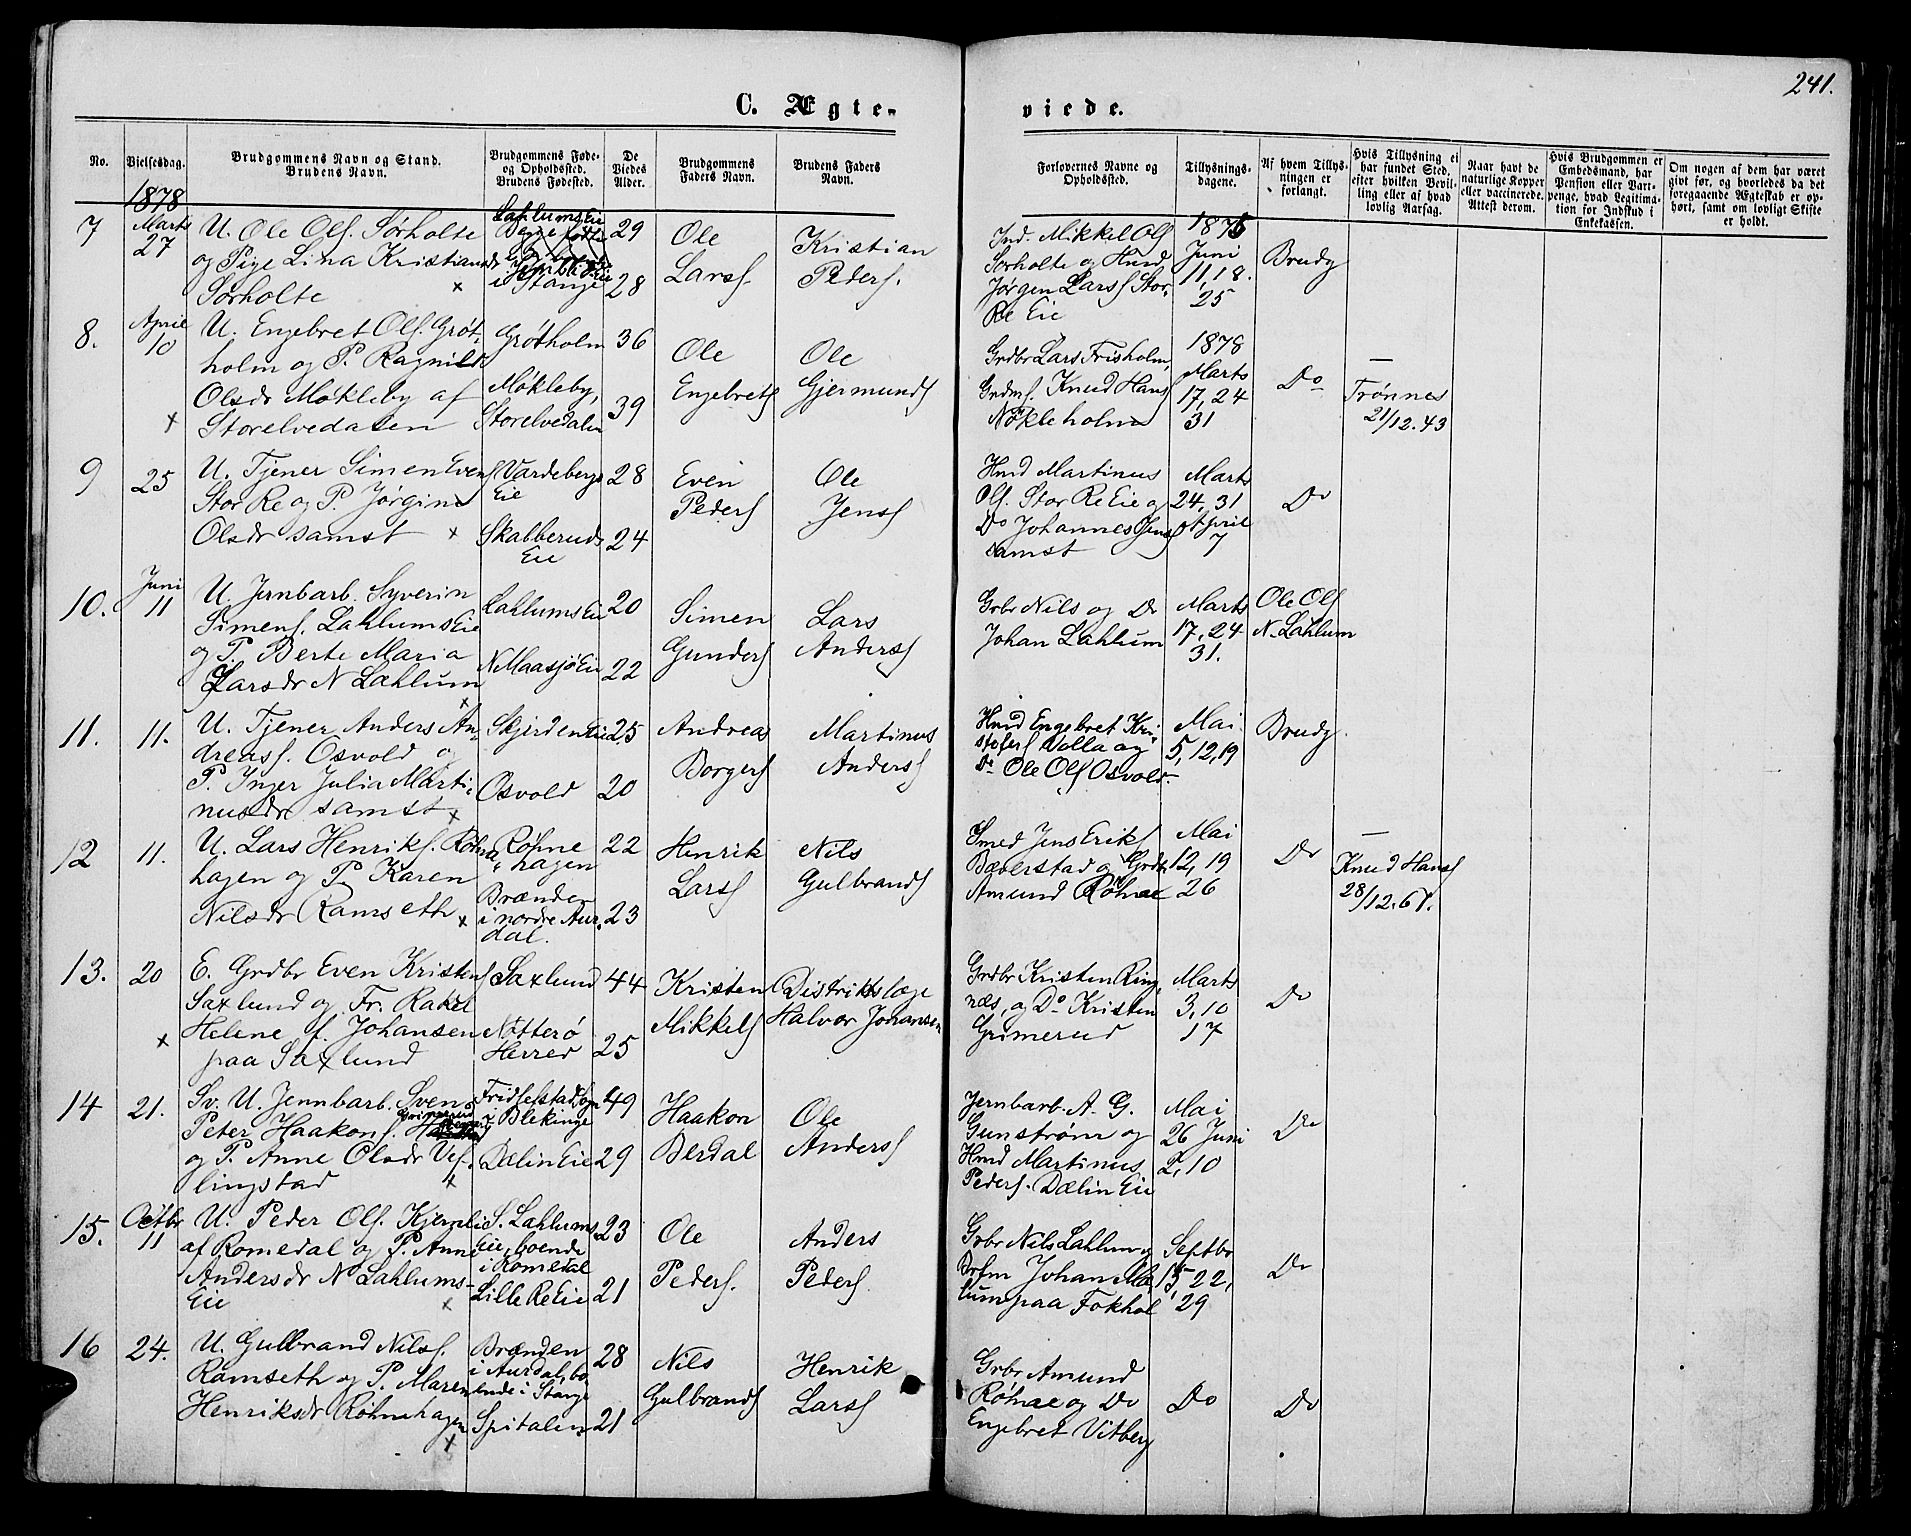 241.
C. Ægte-
viede.
No.
Vielsesdag.
Brudgommens Navn og Stand.
Brudens Navn.
Brudgommens Føde-
og Opholdssted.
Brudens Fødested.
De
Viedes
Alder.
Brudgommens
Faders Navn.
Brudens Faders
Navn.
Forlovernes Navne og
Opholdssted.
Tillysnings-
dagene.
Af hvem Tillys-
ningen er
forlangt.
Hvis Tillysning ei
har fundet Sted,
efter hvilken Bevil-
ling eller af hvad
lovlig Aarsag.
Naar havt de
naturlige Kopper
eller vaccinerede.
Attest derom.
Hvis Brudgommen er
Embedsmand, har
Pension eller Vart-
penge, hvad Legitima-
tion for Indskud i
Enkekassen.
Om nogen af dem har været
givt før, og hvorledes da det
foregaaende Ægteskab er op-
hørt, samt om lovligt Skifte
er holdt.
1878
7
Marts
27
U. Ole Ols. Sørholte
og Pige Lina Kristiansdr
Sørholte x
Lahlums Eie
i Stange
29
28
Ole
Lars.
Kristian
Peders.
Ind. Mikkel Ols
Sørholte og Hmd
Jørgen Lars Stor
Re Eie
1876
Juni
11, 18.
25
Brudg
8.
April
10
U. Engebret Ols. Grøt-
holm og P. Ragnild
Olsdr Møkleby af
x Storelvedalen
Grøtholm
Møkleby,
Storelvedalen
36
39
Ole
Engebrets
Ole
Gjermunds
Grdbr Lars Frisholm,
Grdms. Knud Hans
Nøkleholm
1878
Marts
17, 24
31
Do
—
Trønnes
21/12.43
9
25
U. Tjener Simen Evens
Stor Re og P. Jørgine
Olsdr samst x
Vardebergs
Eie
Skabberuds
Eie
28
24
Even
Peders
Ole
Jens
Hmd Martinus
Ols. Stor Re Eie og
Do Johannes Jens
samst
Marts
24, 31
April
7
Do
10.
Juni
11
U. Jernbarb. Syverin
Simens. Lahlums Eie
og P. Berte Maria
Larsdr N Lahlum x
Lahlums Eie
N Maasjø Eie
20
22
Simen
Gunders
Lars
Anders
Grbr Nils og Do
Johan Lahlum
Marts
17, 24
31.
Ole Ols
N. Lahlum
11.
11.
U. Tjener Anders An-
dreass. Osvold og
P. Inger Julia Marti-
nusdr samst x
Skjerden Eie
Osvold
25
20
Andreas
Borgers
Martinus
Anders
Hmd Engebret Kri-
stofers Volla og
Do Ole Ols Osvold.
Mai
5, 12, 19
Brudg.
12
11.
U. Lars Henriks. Røhne
hagen og P. Karen
Nilsdr Ramseth x
Røhne
hagen
Brænden
i nordre Aur-
dal.
22
23
Henrik
Lars
Nils
Gulbrands
Smed Jens Eriks
Bæverstad og Grdbr
Amund Røhne
Mai
12, 19
26
Do
—
Knud Hans
28/12.67.
13.
20
E. Grdbr Even Kristens
Saxlund og Fr. Rakel
x Helene f. Johansen
paa Saxlund
Saxlund
Nøtterø
Herred
44
25
Kristen
Mikkels
Distriktslæge
Halvor Johansen
Grdbr Kristen Ring-
næs, og Do Kristen
Grimerud
Marts
3, 10
17
Do
14
21.
Sv. U. Jernbarb. Sven
Peter Haakons. Grimerud
og P. Anne Olsdr Vef-
lingstad x
Fridlefstad sogn
i Blekinge
Dælin Eie
49
29
Haakon
Berdal
Ole
Anders
Jernbarb. A. G.
Gunstrøm og
Hmd Martinus
Peders. Dælin Eie
Mai
26 Juni
2, 10
Do
15.
Octbr
11
U. Peder Ols. Kjernli
af Romedal og P. Anne
Andersdr N Lahlums-
Eie x
S. Lahlums
Eie, boende
i Romedal
Lille Re Eie
23
21
Ole
Peders.
Anders
Peders.
Grbr Nils Lahlum og
Johan
paa Fokhol
Septbr
15, 22,
29
Do
16
24.
U. Gulbrand Nils.
Ramseth og P. Maren
Henriksdr Røhnehagen
x
Brænden
i Aurdal, bo
ende i Stange
Spitalen
28
21
Nils
Gulbrands
Henrik
Lars
Grbr Amund
Røhne og Do
Engebret Vitberg
Do
Do